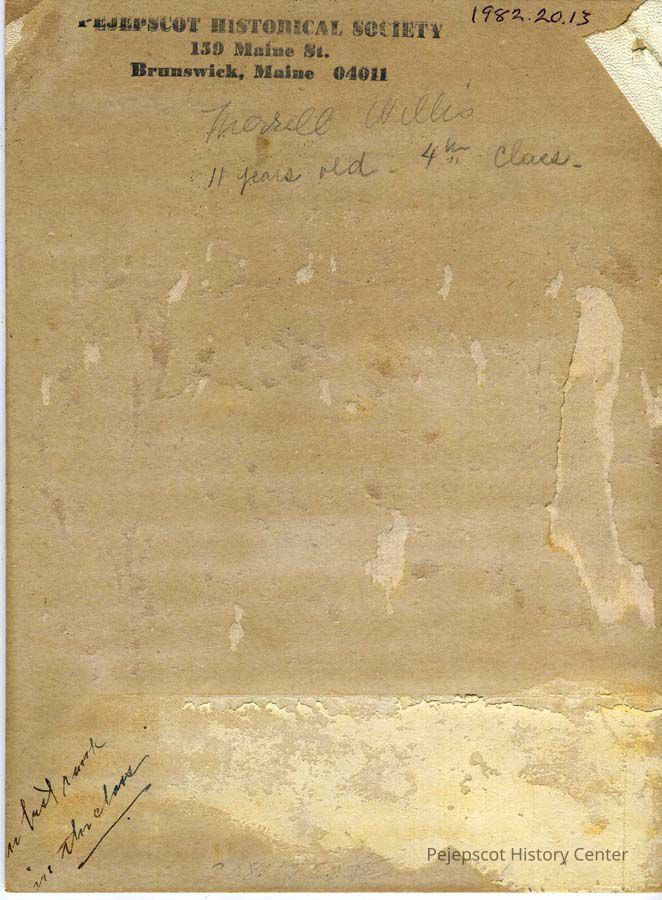 PEJEPSCOT HISTORICAL SOCIETY
159 Maine St.
Brunswick, Maine 04011
1982.20.13
Merrill Willis
11 years old - 4th Class-
in the class
Pejepscot History Center